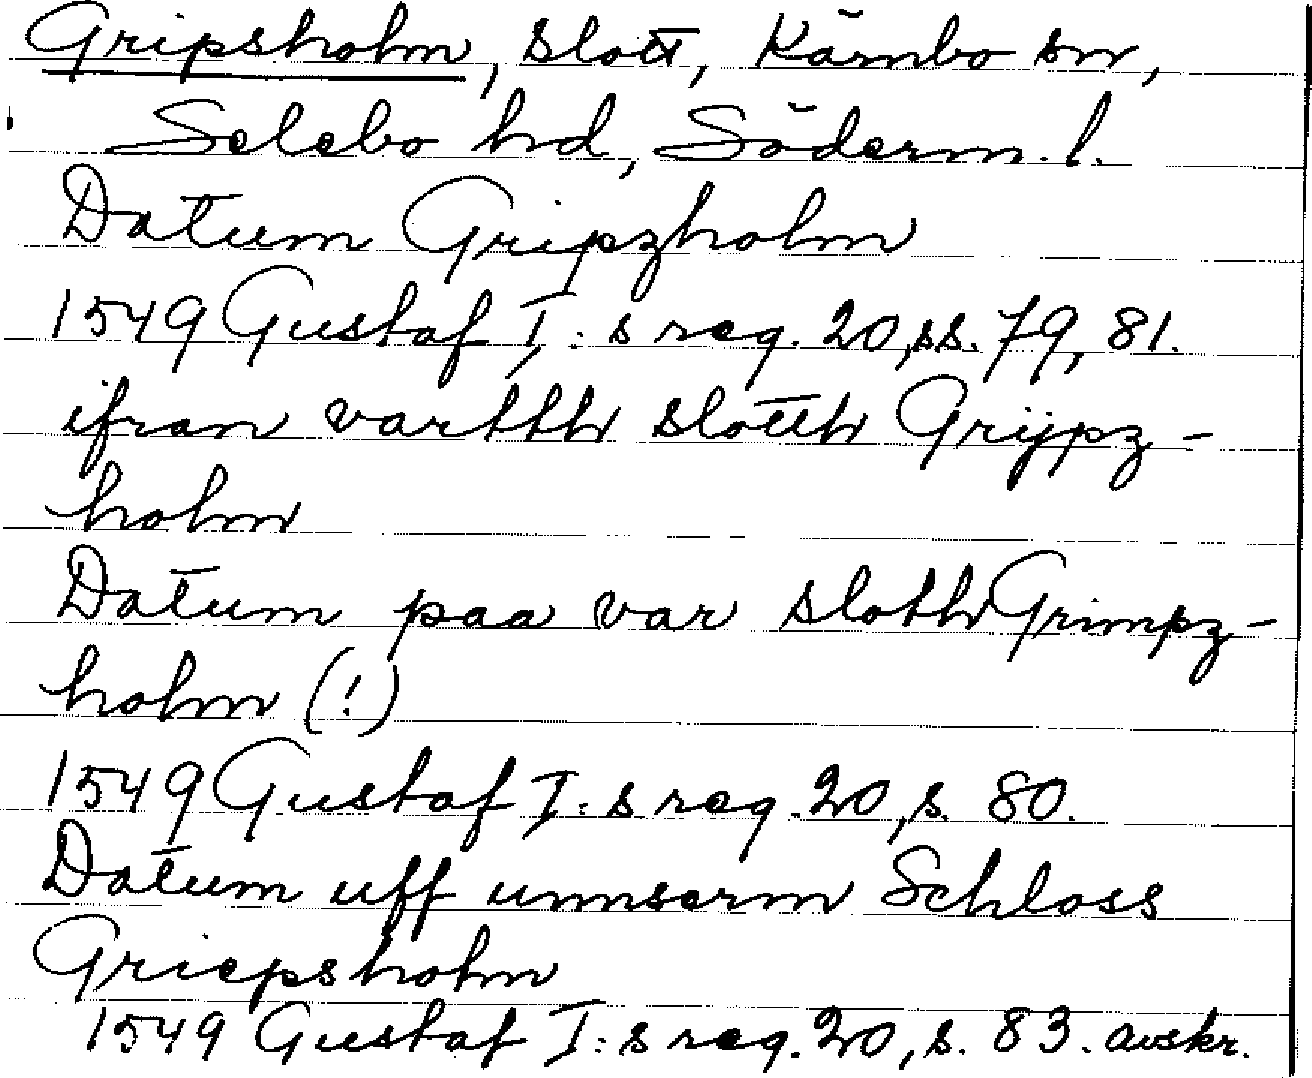 Gripsholm, slott, Kärnbo sn,
Selebo hd, Söderm. l.
Datum Gripzholm
1549 Gustaf I:s reg. 20, ss. 79, 81.
ifran vartthh slotth Grijpz-
holm
Datum paa var slotth Grimpz-
holm (!)
1549 Gustaf I:s reg. 20, s. 80.
Datum uff unnserm Schloss
Griepsholm
1549 Gustaf I:s reg. 20, s. 83. avskr.